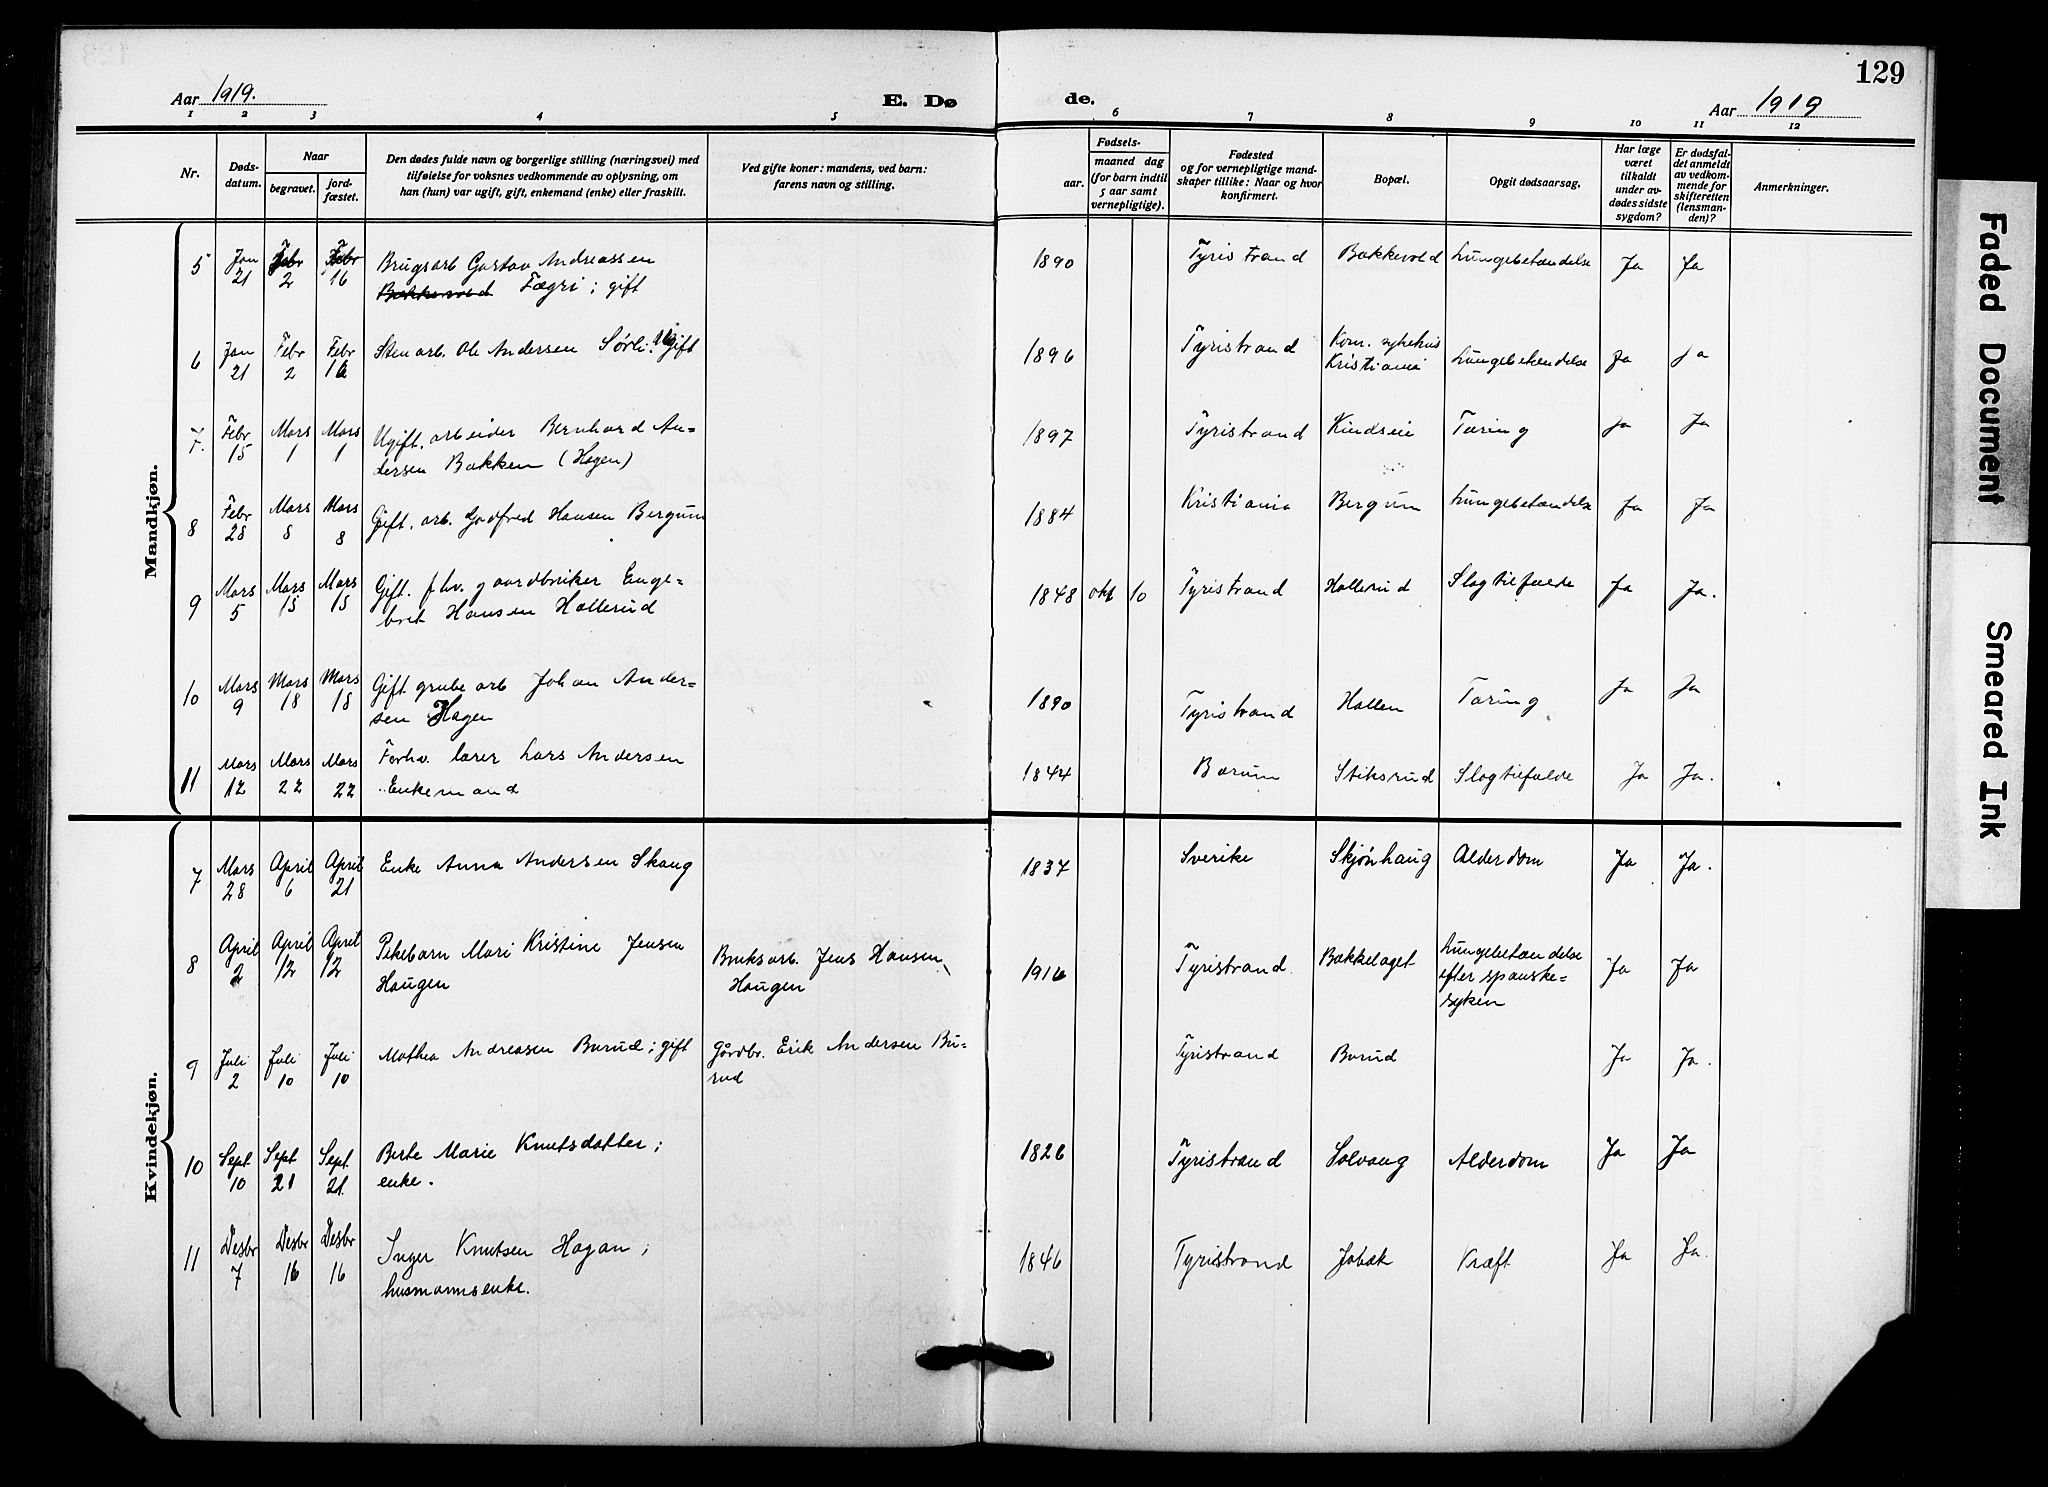 129
Aar 1919. E. Dø de. Aar 1919
1 2 3 4 5 6 7 8 9 10 11 12
Nr. Døds-datum. Naar begravet. jord-fæstet. Den dødes fulde navn og borgerlige stilling (næringsvei) med tilføielse for voksnes vedkommende av oplysning, om han (hun) var ugift, gift, enkemand (enke) eller fraskilt. Ved gifte koner: mandens, ved barn: farens navn og stilling. Fødsels- aar. maaned dag (for barn indtil 5 aar samt vernepligtige). Fødested og for vernepligtige mand-skaper tillike: Naar og hvor konfirmert. Bopæl. Opgit dødsaarsag. Har læge været tilkaldt under av-dødes sidste sygdom? Er dødsfal-det anmeldt av vedkom-mende for skifteretten (lensman-den)? Anmerkninger.
Mandkjøn.
5 Jan 21 Febr 2 Febr 16 Brugsarb Gustav Andreassen Bakkevold Fægri; gift 1890 Tyristrand Bakkevold Lungebetændelse Ja Ja
6 Jan 21 Febr 2 Febr 16 Stenarb. Ole Andersen Sørli. Ugift 1896 Tyristrand Kom. sykehus Kristiania Lungebetændelse Ja Ja
7. Febr 15 Mars 1 Mars 1 Ugift. arbeider Bernhard Andersen Bakken (Hagen) 1897 Tyristrand Kindseie Tæring Ja Ja
8 Febr 28 Mars 8 Mars 8 Gift. arb. Godfred Hansen Bergum 1884 Kristiania Bergum Lungebetændelse Ja Ja
9 Mars 5 Mars 15 Mars 15 Gift. fhv. gaardbruker Engebret Hansen Hollerud 1848 okt 10 Tyristrand Hollerud Slagtilfælde Ja Ja.
10 Mars 9 Mars 18 Mars 18 Gift grubearb Johan Andersen Hagen 1890 Tyristrand Hollen Tæring Ja Ja
11 Mars 12 Mars 22 Mars 22 Forhv. lærer Lars Andersen Enkemand 1844 Bærum Stiksrud Slagtilfælde Ja Ja.
Kvindekjøn.
7 Mars 28 April 6 April 21 Enke Anna Andersen Skaug 1837 Sverike Skjønhaug Alderdom Ja Ja.
8 April 2 April 12 April 12 Pikebarn Mari Kristine Jensen Haugen Bruksarb. Jens Hansen Haugen 1916 Tyristrand. Bakkelaget Lungebetændelse efter spanske-syken Ja Ja
9 Juli 2 Juli 10 Juli 10 Mathea Andreasen Burud; gift Gårdbr. Erik Andersen Burud Tyristrand Burud Ja Ja.
10 Sept 10 Sept 21 Sept. 21. Berte Marie Knutsdatter; enke. 1826 Tyristrand Solvang Alderdom Ja Ja
11 Desbr 7 Desbr 16 Desbr 16 Inger Knutsen Hagan; husmannsenke. 1846 Tyristrand Jobak Kræft Ja Ja.
Faded Document
Smeared Ink